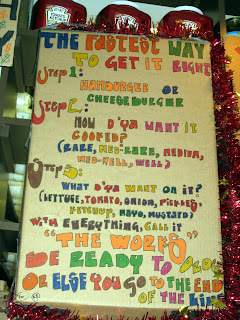 THE FASTEST WAY
TO GET IT RIGHT
Step 1:
HAMBURGER OR
CHEESEBURGER
Step 2:
HOW D'YA WANT IT
COOKED?
(RARE, MED-RARE, MEDIUM,
MED-WELL, WELL)
Step 3:
WHAT D'YA WANT ON IT?
(LETTUCE, TOMATO, ONION, PICKLES,
KETCHUP, MAYO, MUSTARD)
WITH EVERYTHING, CALL IT
"THE WORKS"
BE READY TO
OR ELSE YOU GO TO THE END
OF THE LINE